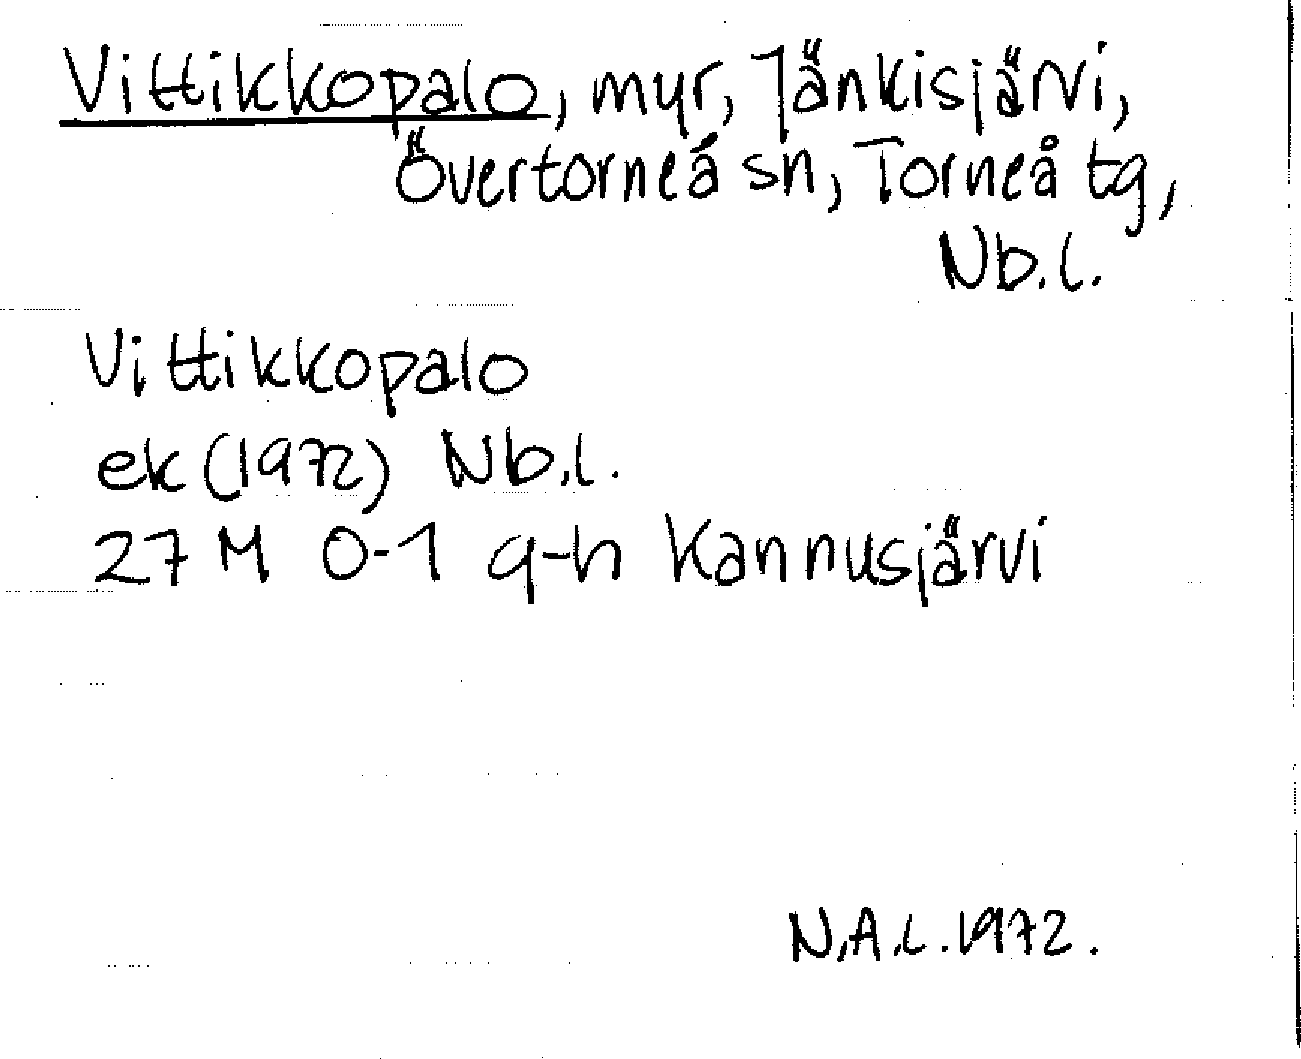 Vittikkopalo, myr, Jänkisjärvi,
Övertorneå sn, Torneå tg,
Nb.l.
Vittikkopalo
ek (1972) Nb.l.
27 M 0-1 g-h Kannusjärvi
N.A.L. 1972.